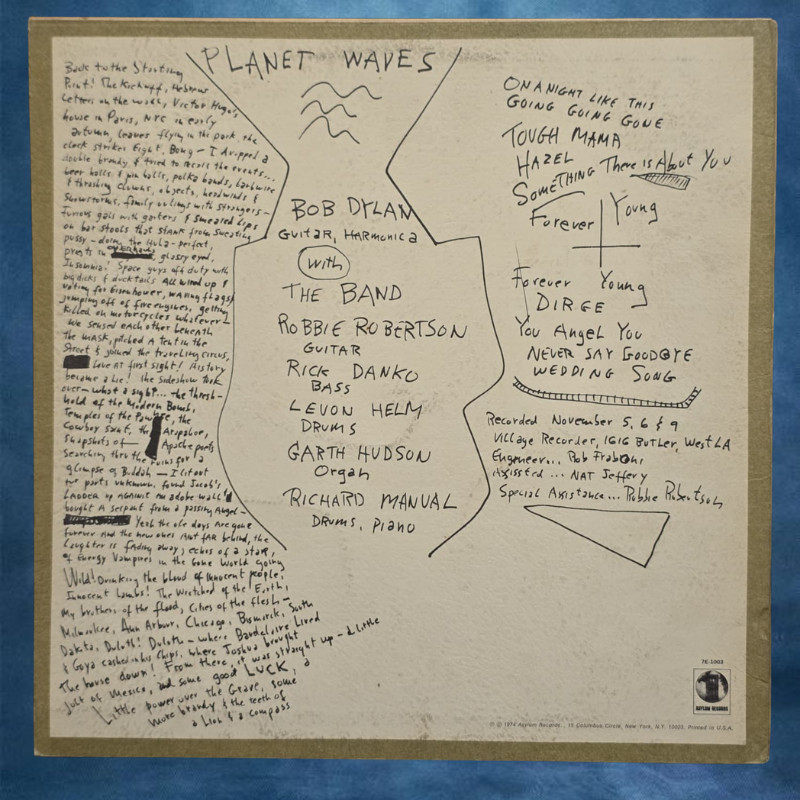 PLANET WAVES
Back to the Starting
Point! The Kickoff, Hebrew
letters on the wall, Victor Hugo's
house in Paris, NYC in early
autumn, leaves flying in the park, the
clock strikes Eight. Bong — I dropped a
double brandy & tried to recall the events...
beer halls & pin balls, polka bands, barbwire
& thrashing clowns, objects, headwinds &
snowstorms, family outings with strangers —
Furious gals with garters & smeared lips
on bar stools that stank from sweating
pussy — doing the Hula — perfect,
priests in overhauls, glassy eyed,
Insomnia! Space guys off duty with
big dicks & ducktails All wired up &
voting for Eisenhower, waving flags &
jumping off of fire engines, getting
killed on motorcycles whatever —
We sensed each other beneath
the MASK, pitched A tent in the
Street & joined the traveling circus,
love AT first sight! History
became a lie! the sideshow took
over — what a sight... the thresh-
hold of the Modern Bomb,
Temples of the Pawnee, the
Cowboy saint, the Arapahoe,
snapshots of Apache poets
searching thru the ruins for a
glimpse of Buddah — I lit out
for parts unknown, found Jacob's
LADDER up AGAINST an adobe wall &
bought A serpent from a passing Angel —
Yeah the ole days Are gone
forever And the new ones Aint far behind, the
Laughter is fading away, echos of a star,
of Energy Vampires in the Gone World going
Wild! Drinking the blood of innocent people,
Innocent Lambs! The Wretched of the Earth,
My brothers of the flood, Cities of the flesh —
Milwaukee, Ann Arbor, Chicago, Bismarck, South
Dakota, Duluth! Duluth — where Baudelaire Lived
& Goya cashed in his Chips, where Joshua brought
The house down! From there, it was straight up — a little
jolt of Mexico, and some good LUCK, a
Little power over the Grave, some
more brandy & the teeth of
a Lion & a compass
BOB DYLAN
GUITAR, HARMONICA
with
THE BAND
ROBBIE ROBERTSON
GUITAR
RICK DANKO
BASS
LEVON HELM
DRUMS
GARTH HUDSON
Organ
RICHARD MANUAL
DRUMS, PIANO
ON A NIGHT LIKE THIS
GOING GOING GONE
TOUGH MAMA
HAZEL
SOMETHING There is About YOU
Forever Young
Forever Young
DIRGE
You Angel You
NEVER SAY GOODBYE
WEDDING SONG
Recorded November 5, 6 & 9
Village Recorder, 1616 BUTLER, West LA
Engineer... Rob Fraboni
Assissted... NAT Jeffery
Special Assistance... Robbie Robertson
7E-1003
ASYLUM RECORDS
℗ © 1974 Asylum Records, 15 Columbus Circle, New York, N.Y. 10023. Printed in U.S.A.